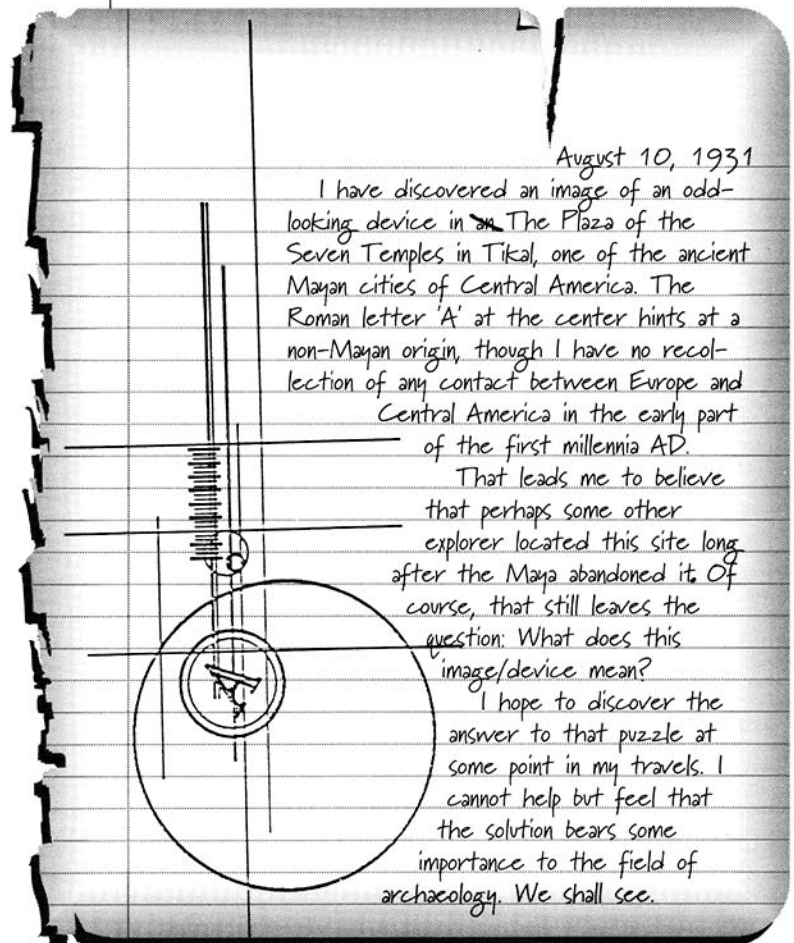 August 10, 1931
I have discovered an image of an odd-
looking device in an The Plaza of the
Seven Temples in Tikal, one of the ancient
Mayan cities of Central America. The
Roman letter 'A' at the center hints at a
non-Mayan origin, though I have no recol-
lection of any contact between Europe and
Central America in the early part
of the first millennia AD.
That leads me to believe
that perhaps some other
explorer located this site long
after the Maya abandoned it. Of
course, that still leaves the
question: What does this
image/device mean?
A
I hope to discover the
answer to that puzzle at
some point in my travels. I
cannot help but feel that
the solution bears some
importance to the field of
archaeology. We shall see.